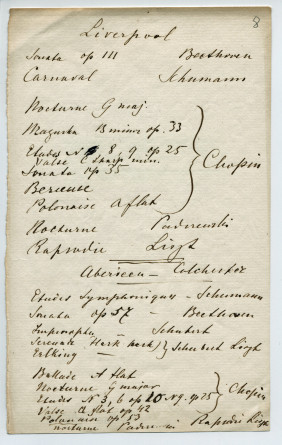 8
Liverpool
Sonata op 111 Beethoven
Carnaval Schumann
Nocturne G maj.
Mazurka B minor op. 33
Etudes N 8, 9 op 25
Valse C sharp min.
Sonata op 35
Berceuse
Chopin
Polonaise A flat
Nocturne Paderewski
Rapsodie Liszt
Aberdeen — Colchester
Etudes Symphoniques — Schumann
Sonata op 57 — Beethoven
Impromptu — Schubert
Serenade (Hark hark) Schubert Liszt
Erlking —
Ballade A flat
Nocturne G major
Etudes N 3, 6 op 10 N 9. op 25 Chopin
Valse A flat op 42
Polonaise op 53
Nocturne Rapsodie Liszt